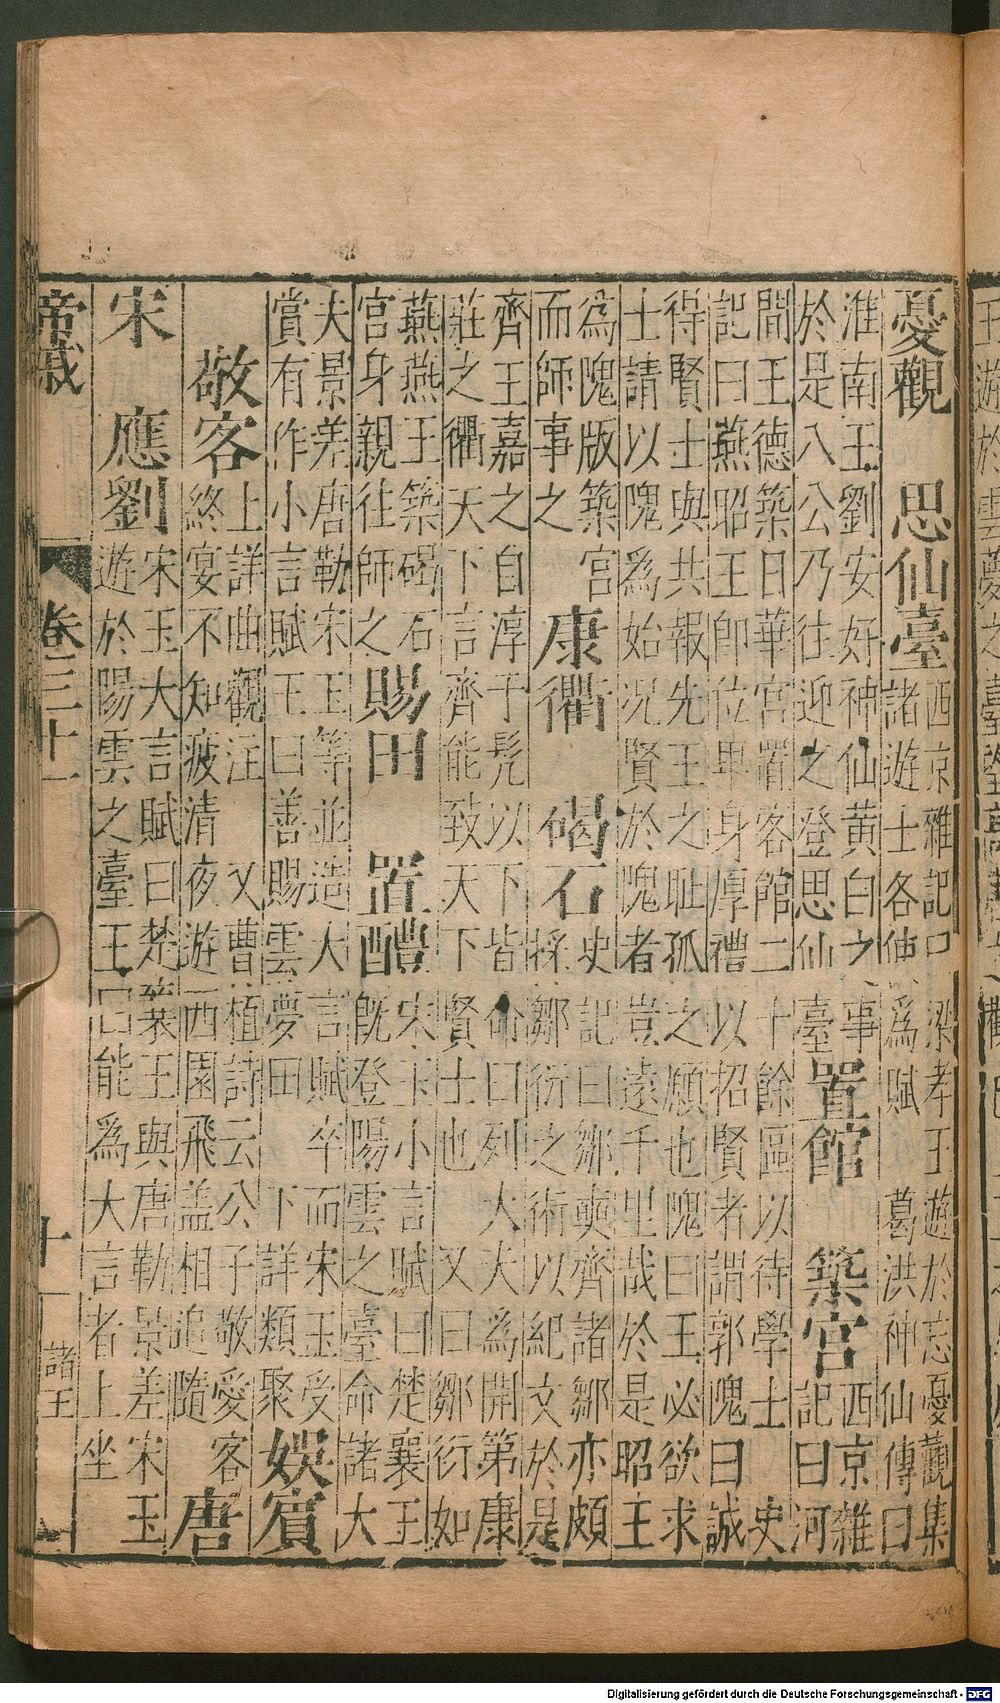 憂觀　思仙臺
西京雜記曰梁孝王遊於忘憂觀集
諸遊士各使爲賦　葛洪神仙傳曰
淮南王劉安好神仙黃白之事
於是八公乃往迎之登思仙臺
置館　築宮
西京雜
記曰河
間王德築日華宮置客館二十餘區以待學士　史
記曰燕昭王卽位卑身厚禮以招賢者謂郭隗曰誠
得賢士與共報先王之耻孤之願也隗曰王必欲求
士請以隗爲始况賢於隗者豈遠千里哉於是昭王
爲隗版築宮
而師事之
康衢　碣石
史記曰鄒奭齊諸鄒亦頗
採鄒衍之術以紀文於是
齊王嘉之自淳于髡以下皆命曰列大夫爲開第康
莊之衢天下言齊能致天下賢士也　又曰鄒衍如
燕燕王築碣石
宮身親往師之
賜田　置醴
宋玉小言賦曰楚襄王
旣登陽雲之臺命諸大
夫景差唐勒宋玉等並造大言賦卒而宋玉受
賞有作小言賦王曰善賜雲夢田　下詳類聚
娛賓
敬客
上詳曲觀注　又曹植詩云公子敬愛客
終宴不知疲清夜遊西園飛盖相追隨
唐
宋　應劉
宋玉大言賦曰楚襄王與唐勒景差宋玉
遊於陽雲之臺王曰能爲大言者上坐
帝戚　卷三十一　十　諸王
Digitalisierung gefördert durch die Deutsche Forschungsgemeinschaft - DFG